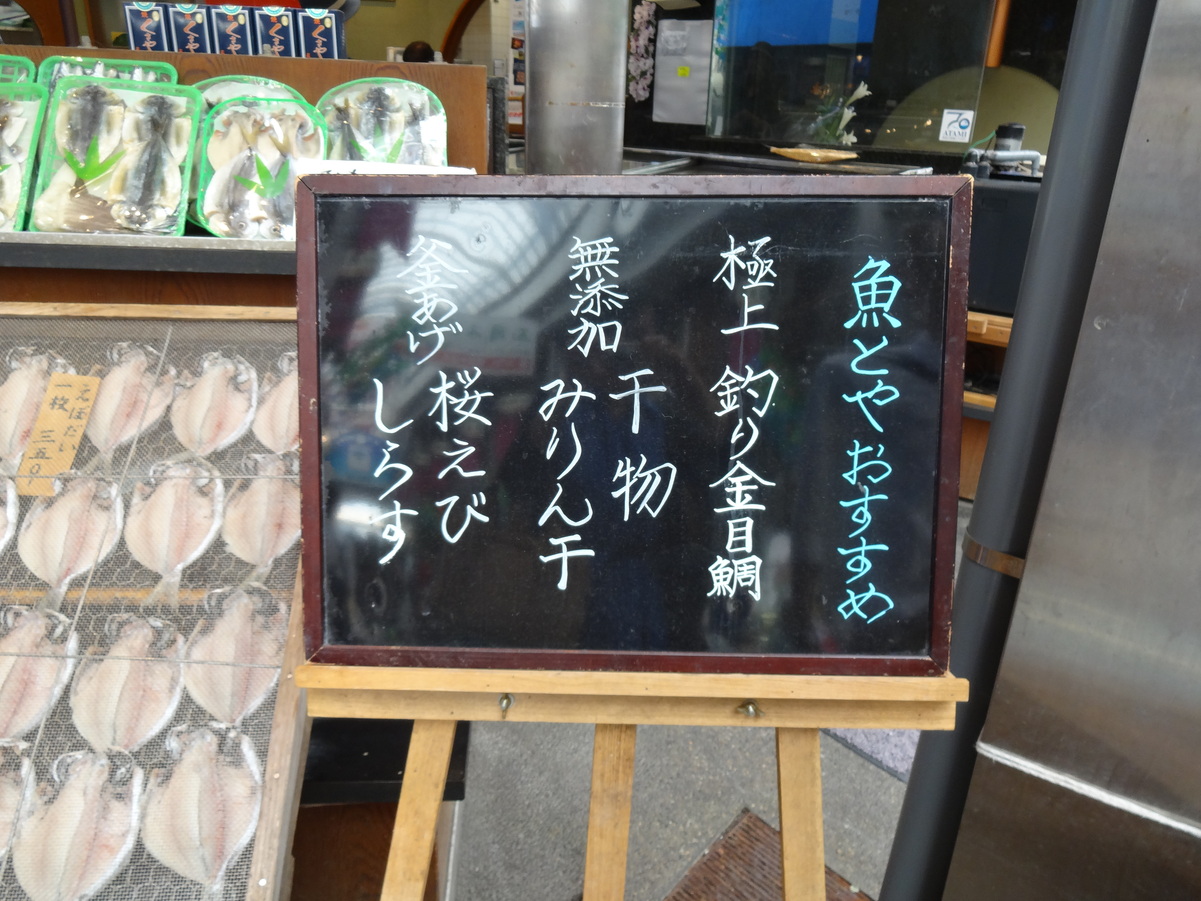 魚とやおすすめ
極上 釣り金目鯛
無添加
干物
みりん干
釜あげ
桜えび
しらす
えぼだい
一枚 三五〇
くさや
くさや
くさや
くさや
くさや
ATAMI